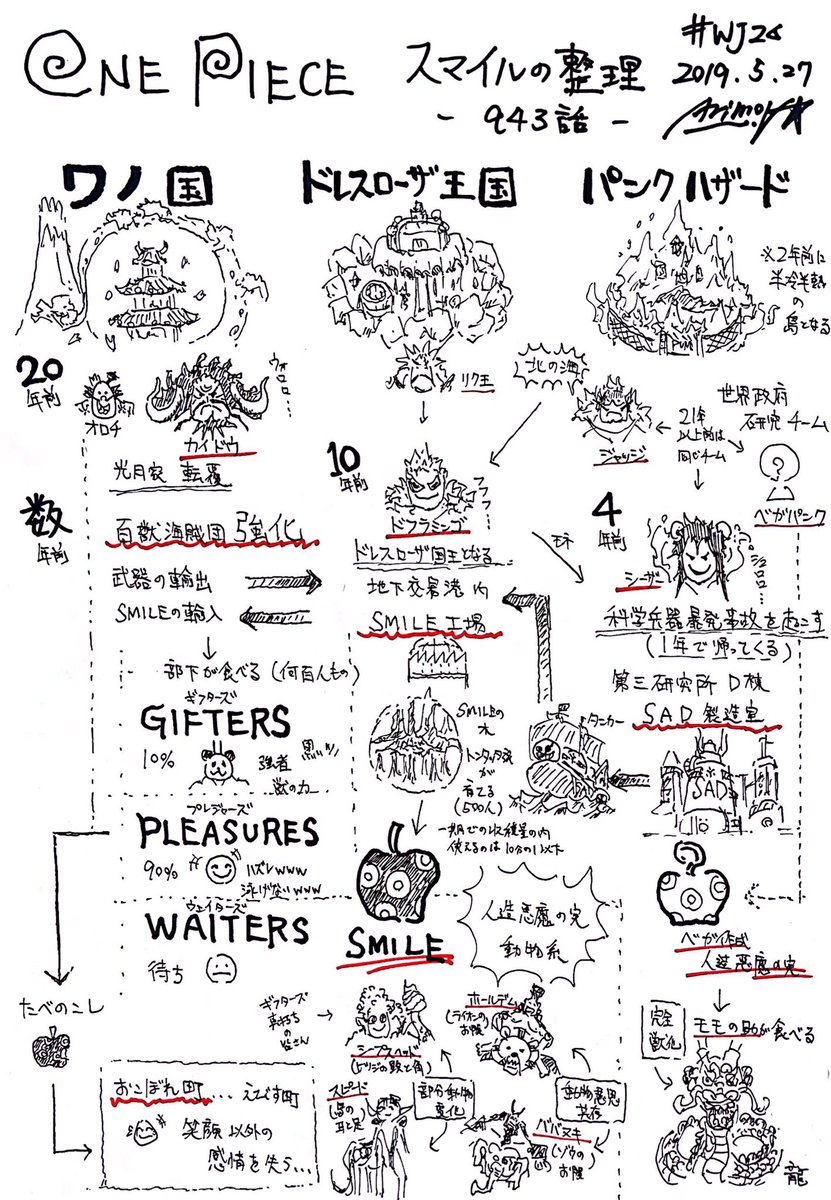 ONE PIECE
スマイルの整理
- 943話 -
#WJ26
2019.5.27
ワノ国
ドレスローザ王国
パンクハザード
※2年前に
半冷半熱
の
島となる
20
年前
オロチ
カイドウ
ウォロロ…
光月家 転覆
数
年前
百獣海賊団強化
武器の輸出
SMILEの輸入
部下が食べる (何百人もの)
ギフターズ
GIFTERS
10%
強者
獣の力
プレジャーズ
PLEASURES
90%
ハズレwww
泳げないwww
ウェイターズ
WAITERS
待ち
たべのこし
おこぼれ町… えびす町
笑顔以外の
感情を失う…
リク王
北の海
10
年前
フフフ…
ドフラミンゴ
ドレスローザ国王となる
地下交易港内
SMILE工場
SMILEの
木
トンタッタ族
が
育てる
(500人)
一期での収穫量の内
使えるのは10分の1以下
SMILE
人造悪魔の実
動物系
ギフターズ
真打ちの
皆さん
シープスヘッド
(ヒツジの段と角)
スピード
(馬の
耳と足)
部分動物
変化
ホールデム
(ライオンの
お腹)
ババヌキ
(ゾウの
お腹)
動物意思
共存
ジャッジ
21年
以上前は
同じチーム
世界政府
研究チーム
?
ベガパンク
4
年前
シーザー
シュロロロ…
科学兵器暴発事故を起こす
(1年で帰ってくる)
第三研究所 D棟
SAD製造室
タンカー
SAD
ベガ作成
人造悪魔の実
完全
獣化
モモの助が食べる
龍